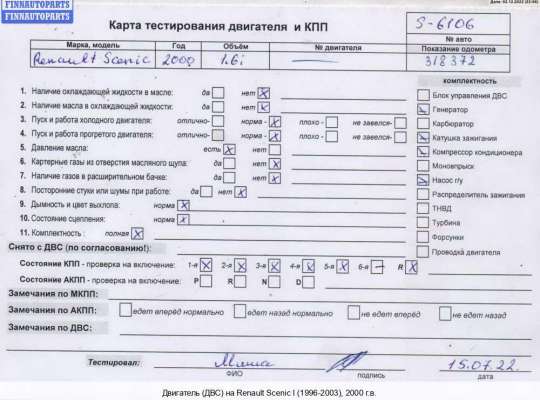 FINNAUTOPARTS
FINNAUTOPARTS
Карта тестирования двигателя и КПП
S-6106
№ авто
Марка, модель Год Объём № двигателя Показание одометра
Renault Scenic 2000 1.6i — 318372
комплектность
1. Наличие охлаждающей жидкости в масле: да нет X
2. Наличие масла в охлаждающей жидкости: да нет X
3. Пуск и работа холодного двигателя: отлично- норма - X плохо - не завелся-
4. Пуск и работа прогретого двигателя: отлично- норма - X плохо - не завелся-
5. Давление масла: есть X нет
6. Картерные газы из отверстия масляного щупа: да нет X
7. Наличие газов в расширительном бачке: да нет X
8. Посторонние стуки или шумы при работе: да нет X
9. Дымность и цвет выхлопа: норма X
10. Состояние сцепления: норма X
11. Комплектность : полная X
Блок управления ДВС
Генератор
Карбюратор
Катушка зажигания
Компрессор кондиционера
Моновпрыск
Насос г/у
Распределитель зажигания
ТНВД
Турбина
Форсунки
Проводка двигателя
Снято с ДВС (по согласованию!):
Состояние КПП - проверка на включение: 1-я X 2-я X 3-я X 4-я X 5-я X 6-я — R X
Состояние АКПП - проверка на включение: P R N D
Замечания по МКПП:
Замечания по АКПП: едет вперёд нормально едет назад нормально не едет вперёд не едет назад
Замечания по ДВС:
Тестировал: 15.07.22
ФИО подпись дата
Двигатель (ДВС) на Renault Scenic I (1996-2003), 2000 г.в.